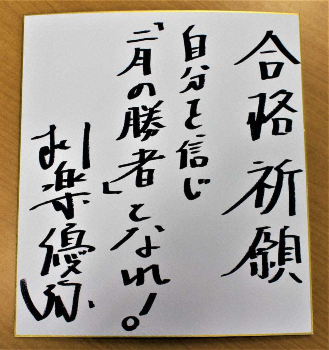 合格祈願
自分を信じ
「二月の勝者」となれ！